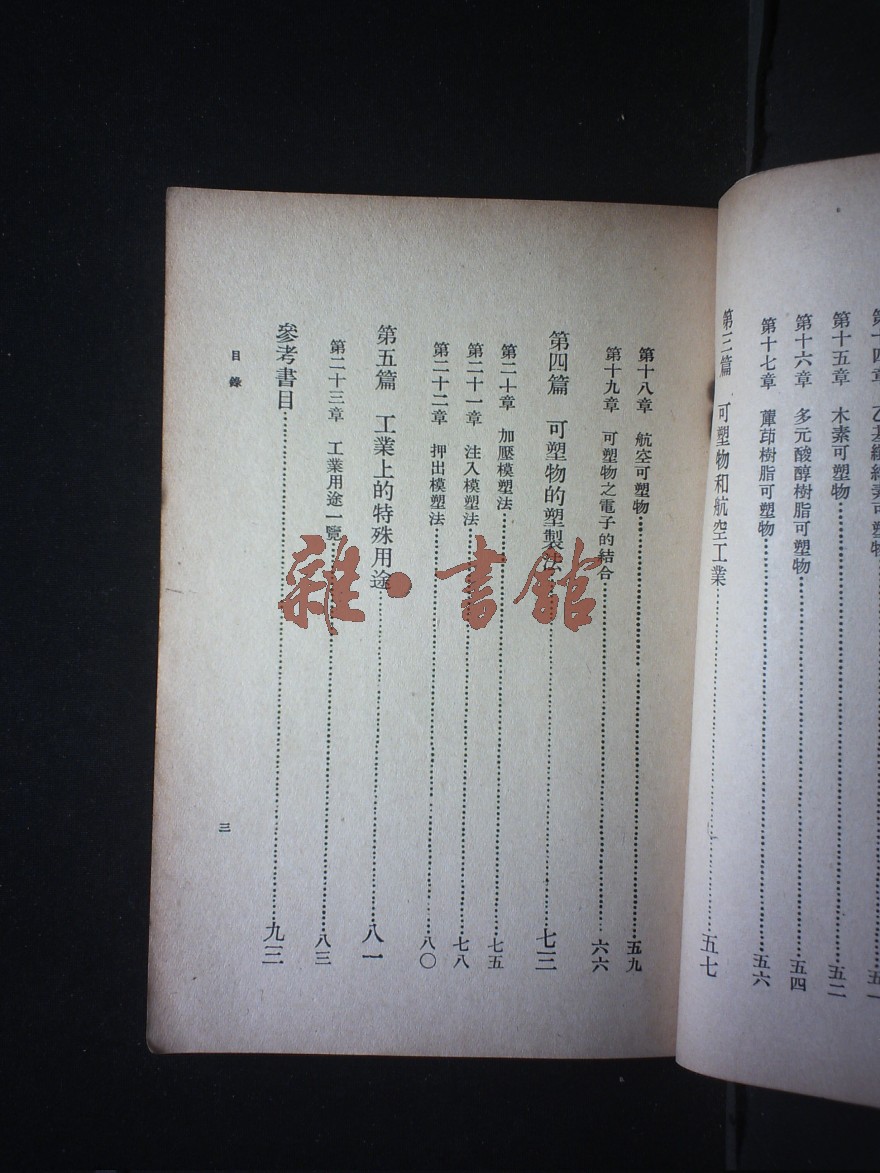 乙基纖維素可塑物……五一
第十五章　木素可塑物……五二
第十六章　多元酸醇樹脂可塑物……五四
第十七章　蓽茚樹脂可塑物……五六
第三篇　可塑物和航空工業……五七
第十八章　航空可塑物……五九
第十九章　可塑物之電子的結合……六六
第四篇　可塑物的塑製法……七三
第二十章　加壓模塑法……七五
第二十一章　注入模塑法……七八
第二十二章　押出模塑法……八〇
第五篇　工業上的特殊用途……八一
第二十三章　工業用途一覽……八三
參考書目……九三
目錄
三
雜·書館